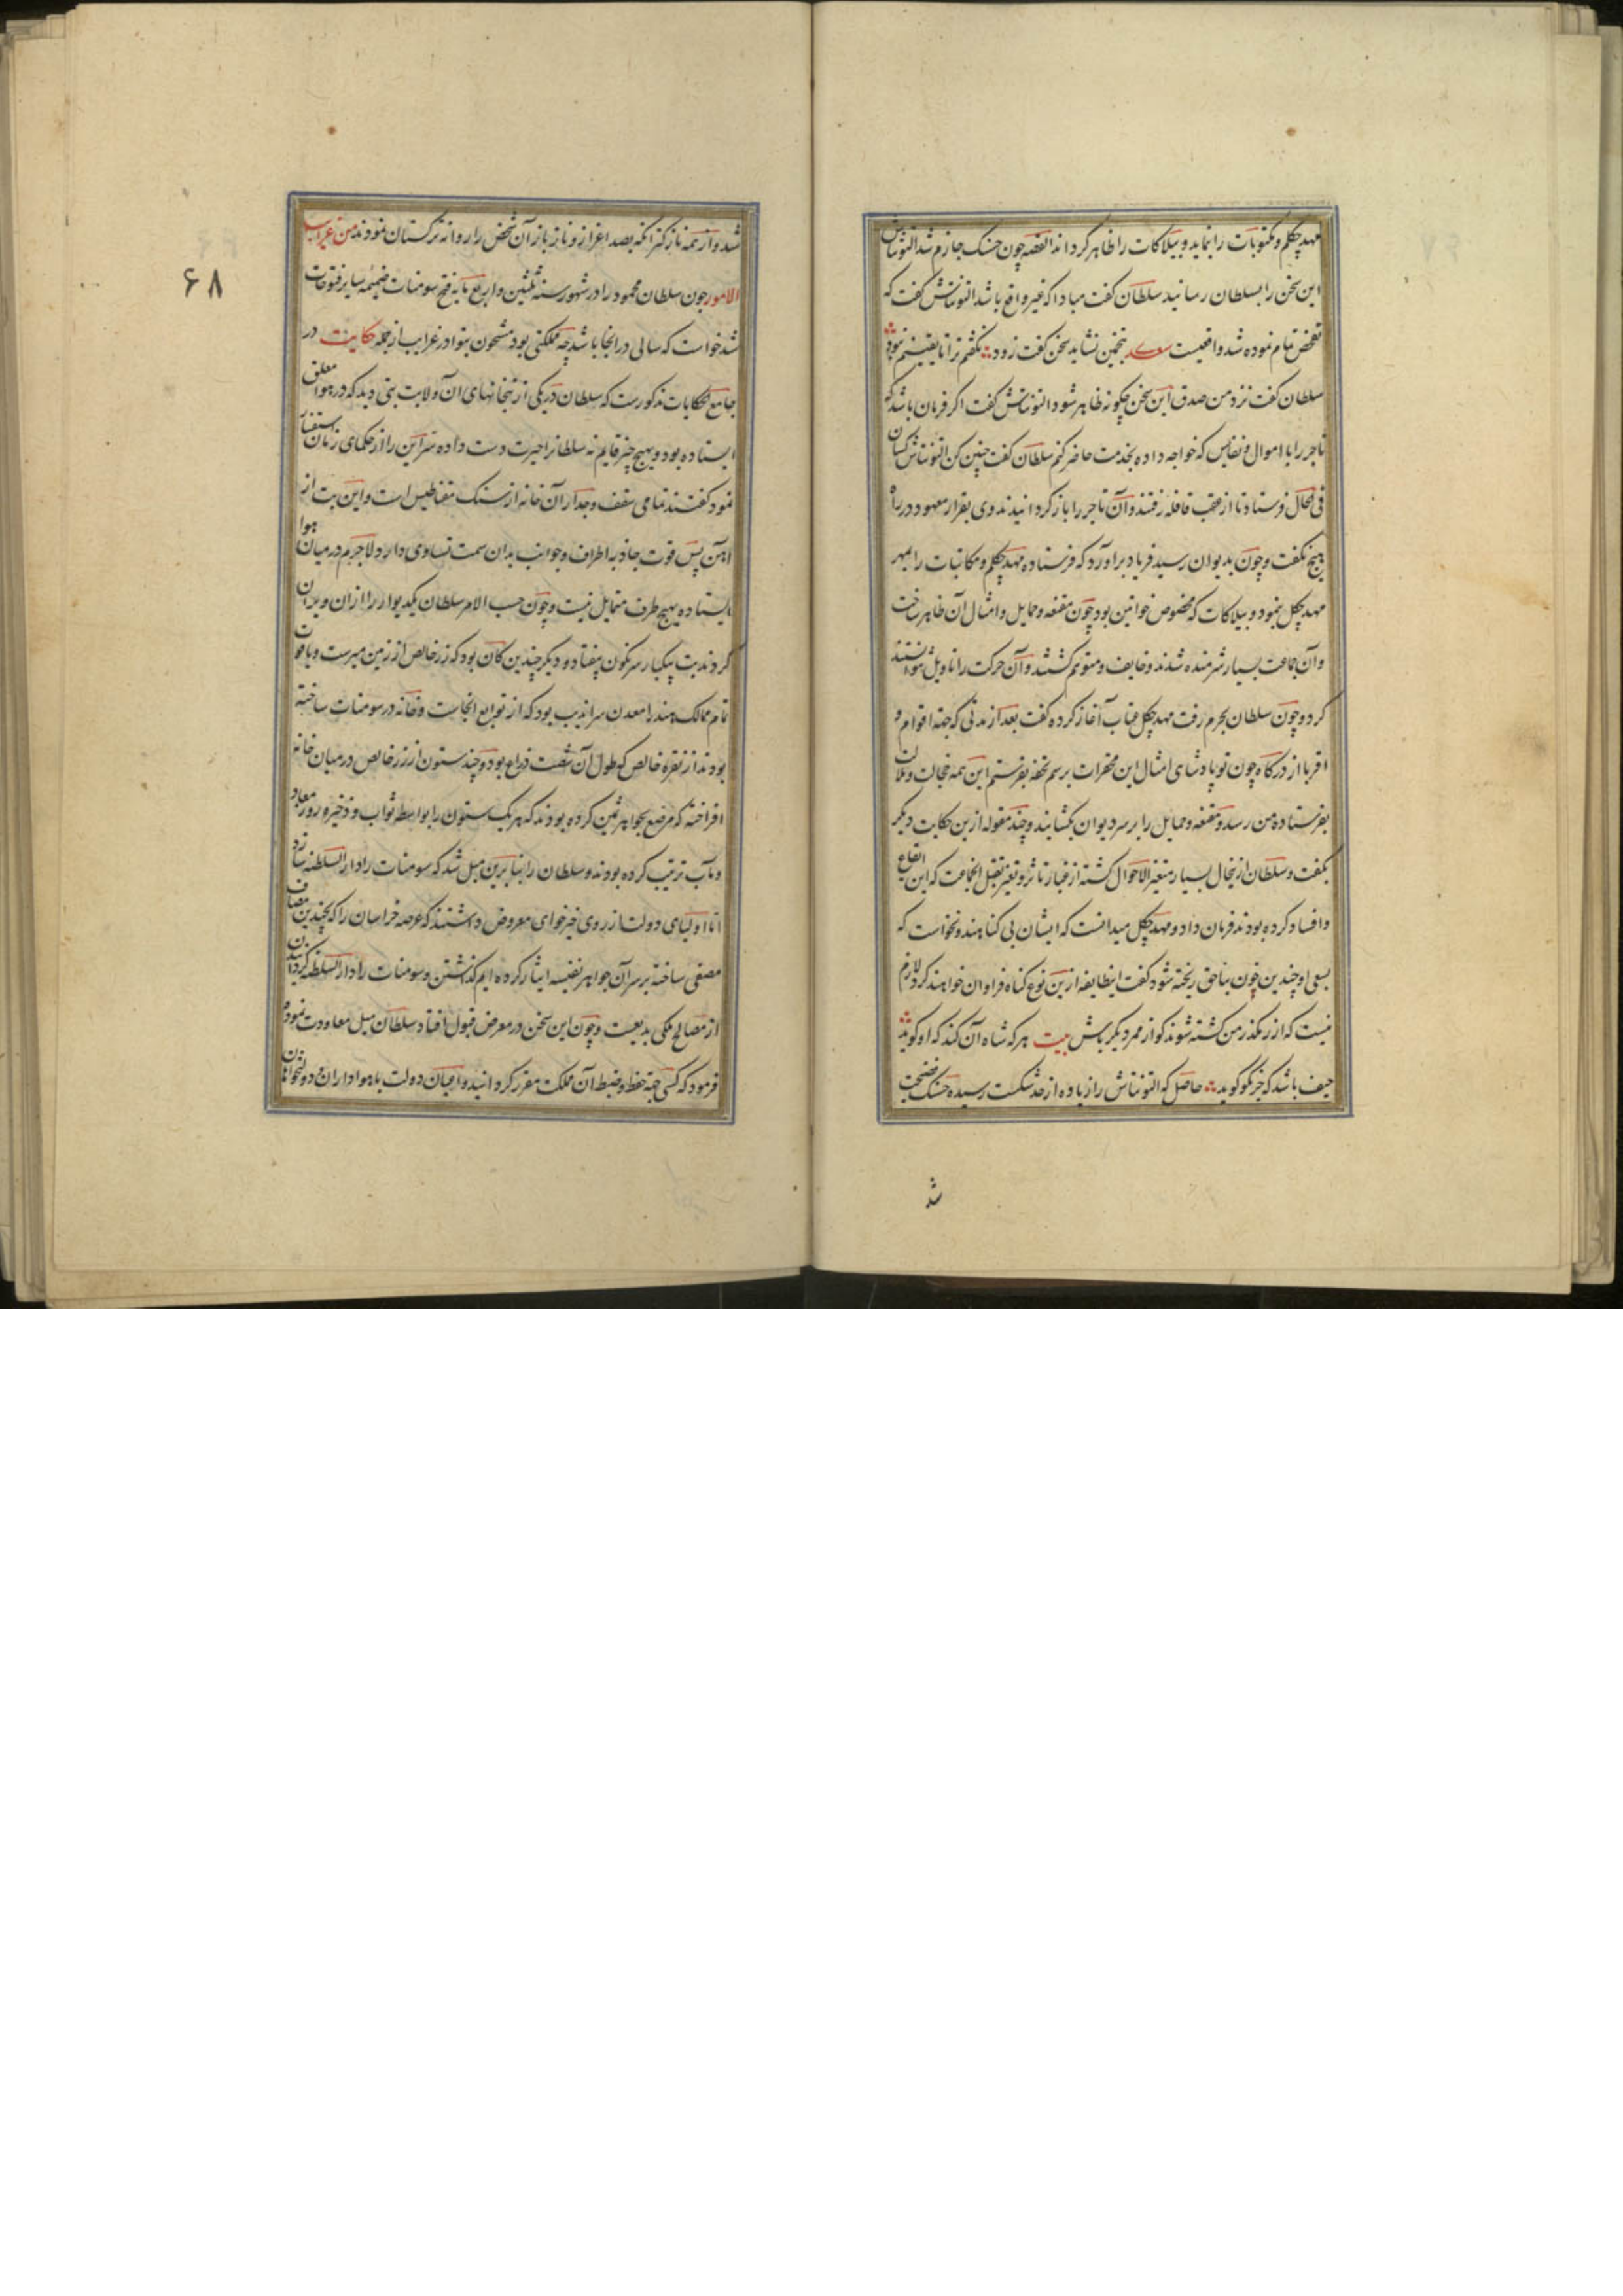 مهد چکل و مکتوبات را بنماید و بیلاکات را ظاهر کرداند القصه چون حسنک جازم شد التونتاش
این سخن را بسلطان رسانید سلطان کفت مبادا که غیر واقع باشد التونتاش کفت که
تفحص تمام نموده شد واقعیست بتخمین نشاید سخن کفت زود نکفتم ترا تا یقینم نبود
سلطان کفت نزد من صدق این سخن چکونه ظاهر شود التونتاش کفت اکر فرمان باشد که
تاجر را با اموال و نفایس که خواجه داده بخدمت حاضر کنم سلطان کفت چنین کن التونتاش کسان
فی الحال فرستاد تا از عقب قافله رفتند و آن تاجر را باز کردانیدند و وی بقرار معهود در راه
هیچ نکفت و چون بدیوان رسید فریاد براورد که فرستاده مهد چکلم و مکاتبات را بمهر
مهد چکل بنمود و بیلاکات که مخصوص خواتین بود چون مقنعه و حمایل و امثال آن ظاهر ساخت
و آن جماعت بسیار شرمنده شدند و خایف و متوهم کشتند و آن حرکت را تاویل نتوانستند
کرد و چون سلطان بحرم رفت مهد چکل عتاب آغاز کرده کفت بعد از مدتی که جهة اقوام و
اقربا از درکاه چون تو پادشای امثال این محقرات برسم تحفه بفرستم این همه خجالت و ملالت
بفرستاده من رسد و مقنعه و حمایل را بر سر دیوان بکشایند و چند مقوله ازین حکایت دیکر
بکفت و سلطان ازینحال بسیار متغیر الاحوال کشته از غبار تاثر و تغیر بقتل انجماعت که این ایقاع
و افساد کرده بودند فرمان داد و مهد چکل میدانست که ایشان بی کناهند و نخواست که
بسعی او چندین خون بناحق ریخته شود کفت اینطایفه ازین نوع کناه فراوان خواهند کرد لازم
نیست که از رهکذر من کشته شوند کو از ممر دیکر باش بیت هر که شاه آن کند که او کوید
حیف باشد که جز نکو کوید حاصل که التونتاش را زیاده از حد شکست رسیده حسنک مضحت
شد
شد و از همه نازکتر آنکه بصد اعزاز و ناز باز آن شخص را روانه ترکستان نمودند من غرایب
الامور چون سلطان محمود را در شهور سنه ثلثین و اربع مایه فتح سومنات ضمیمه سایر فتوحات
شد خواست که سالی در انجا باشد چه مملکتی بود مشحون بنوادر غرایب از جمله حکایت در
جامع الحکایات مذکورست که سلطان در یکی از بتخانهای آن ولایت بتی دید که در هوا معلق
ایستاده بود و بهیچ چیز قایم نه سلطانرا حیرت دست داده سر این را از حکمای زمان استفسار
نمود کفتند تمامی سقف و جدار آن خانه از سنک مقناطیس است و این بت از
آهن پس قوت جاذبه اطراف و جوانب بدان سمت تساوی دارد لاجرم در میان هوا
ایستاده بهیچ طرف متمایل نیست و چون حسب الامر سلطان یکدیوار را از ان ویران
کردند بت بیکبار سرنکون بیفتاد و دیکر چندین کان بود که زر خالص از زمین میرست و یاقوت
تمام ممالک هند را معدن سراندیب بود که از توابع انجاست و خانه در سومنات ساخته
بودند از نقره خالص که طول آن شصت ذراع بود و چند ستون از زر خالص در میان خانه
افراخته که مرصع بجواهر ثمین کرده بودند که هر یک ستون را بواسطه ثواب و ذخیره روز معاد
و مآب ترتیب کرده بودند و سلطان را بنابرین میل شد که سومنات را دار السلطنه سازد
اما اولیای دولت از روی خیرخوای معروض داشتند که عرصه خراسان را که بچندین مصاف
مصفی ساخته بر سر آن جواهر نفیسه ایثار کرده ایم کذاشتن و سومنات را دار السلطنه کردانیدن
از مصالح ملکی بدیعست و چون این سخن در معرض قبول افتاد سلطان میل معاودت نموده
فرمود که کسی جهة حفظ و ضبط آن مملکت مقرر کردانید و اعیان دولت با هواداران و دولتخواهان
۶۸